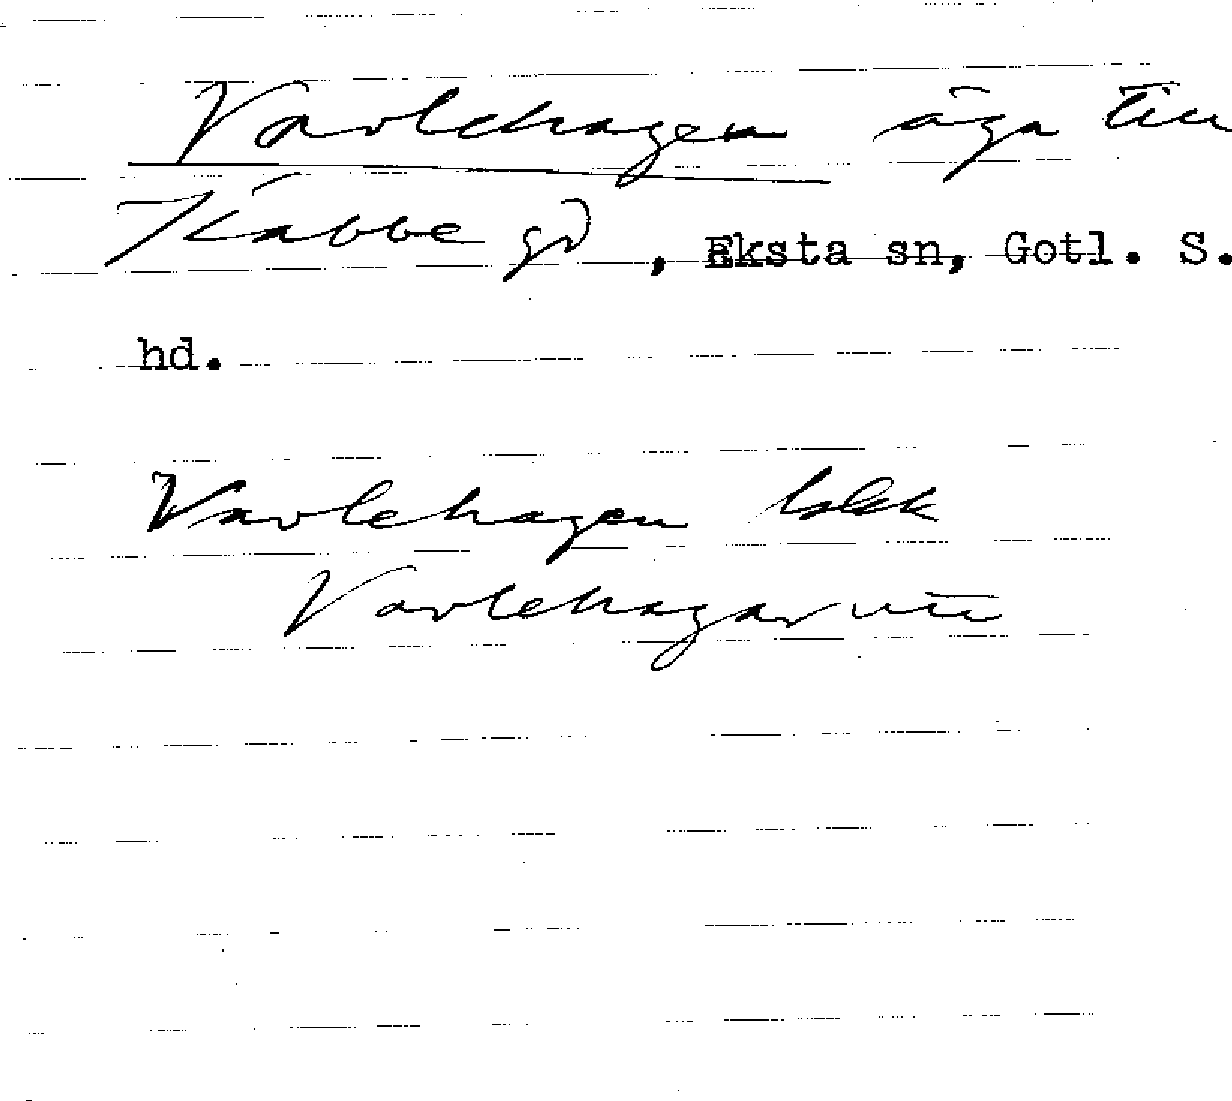 Varlehagen äga till
Kabbe gd, Eksta sn, Gotl. S.
hd.
Varlehagen